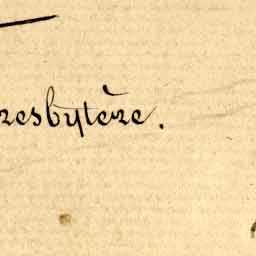 resbytère.